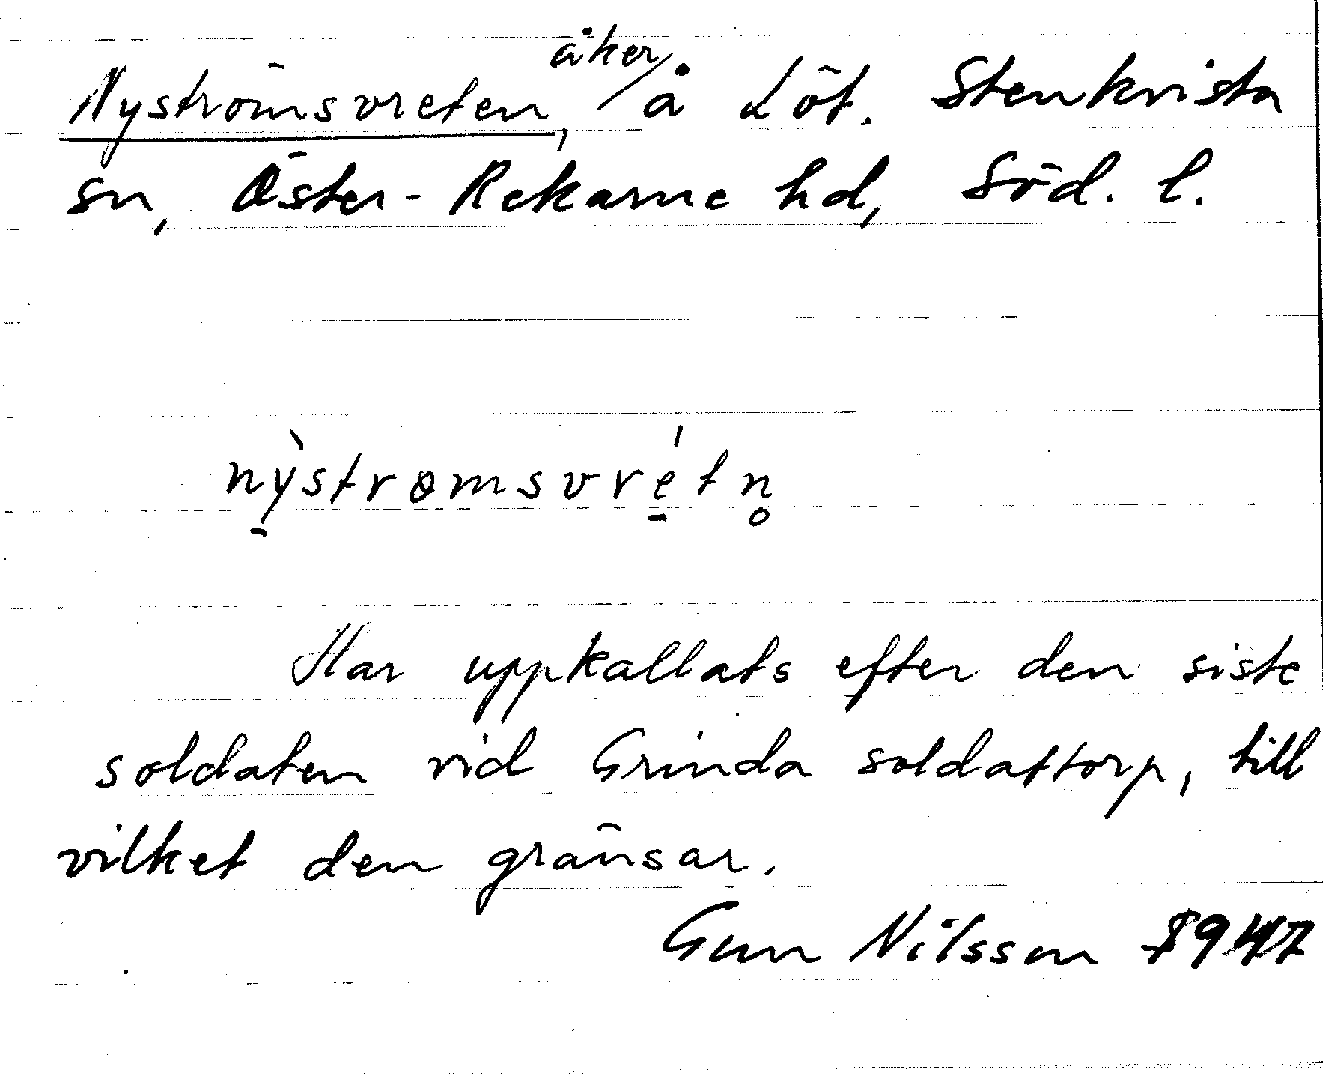 Nyströmsvreten, åker, å Löt. Stenkvista
sn, Öster-Rekarne hd, Söd. l.
nỳ̠strømsvré̠tn̥
Har uppkallats efter den siste
soldaten vid Grinda soldattorp, till
vilket den gränsar.
Gun Nilsson 1947